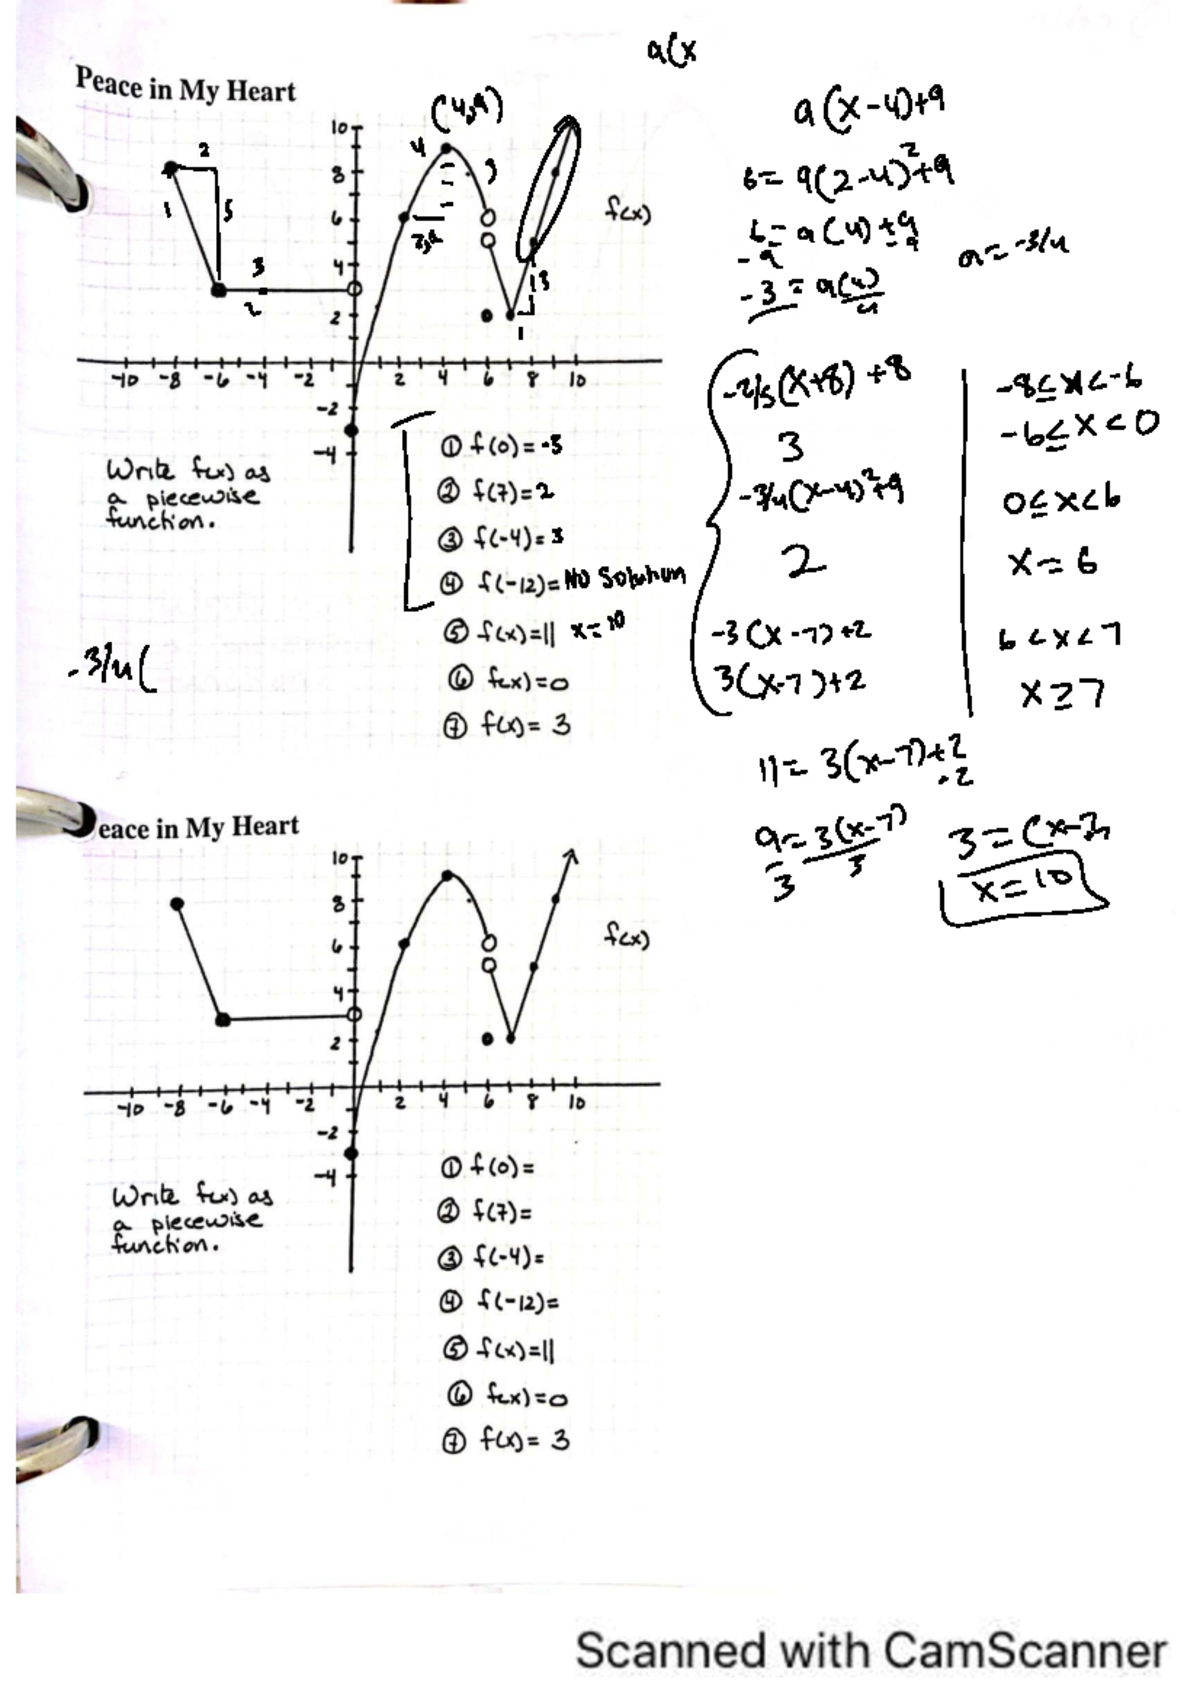 a(x
Peace in My Heart
(4,9)
a(x-4)+9
6=a(2-4)²+9
6=a(4)+9
-9 -9
-3=a(4)
4
a=-3/4
10
8
6
4
2
-2
-4
-10 -8 -6 -4 -2 2 4 6 8 10
2
1
5
3
2
4
3
3
1
f(x)
Write f(x) as
a piecewise
function.
① f(0)=-3
② f(7)=2
③ f(-4)=3
④ f(-12)=No Solution
⑤ f(x)=11 x=10
⑥ f(x)=0
⑦ f(x)=3
-3/4(
-2/5(x+8)+8 -8≤x<-6
3 -6≤x<0
-3/4(x-4)²+9 0≤x<6
2 x=6
-3(x-7)+2 6<x<7
3(x-7)+2 x≥7
11=3(x-7)+2
-2
9=3(x-7)
3 3
3=(x-7)
x=10
eace in My Heart
10
8
6
4
2
-2
-4
-10 -8 -6 -4 -2 2 4 6 8 10
f(x)
Write f(x) as
a piecewise
function.
① f(0)=
② f(7)=
③ f(-4)=
④ f(-12)=
⑤ f(x)=11
⑥ f(x)=0
⑦ f(x)=3
Scanned with CamScanner